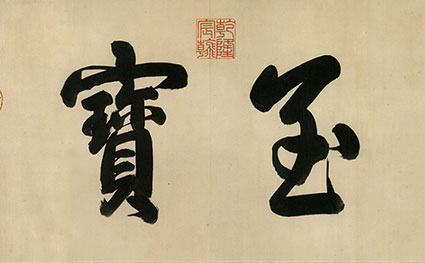 至寶
乾隆
宸翰